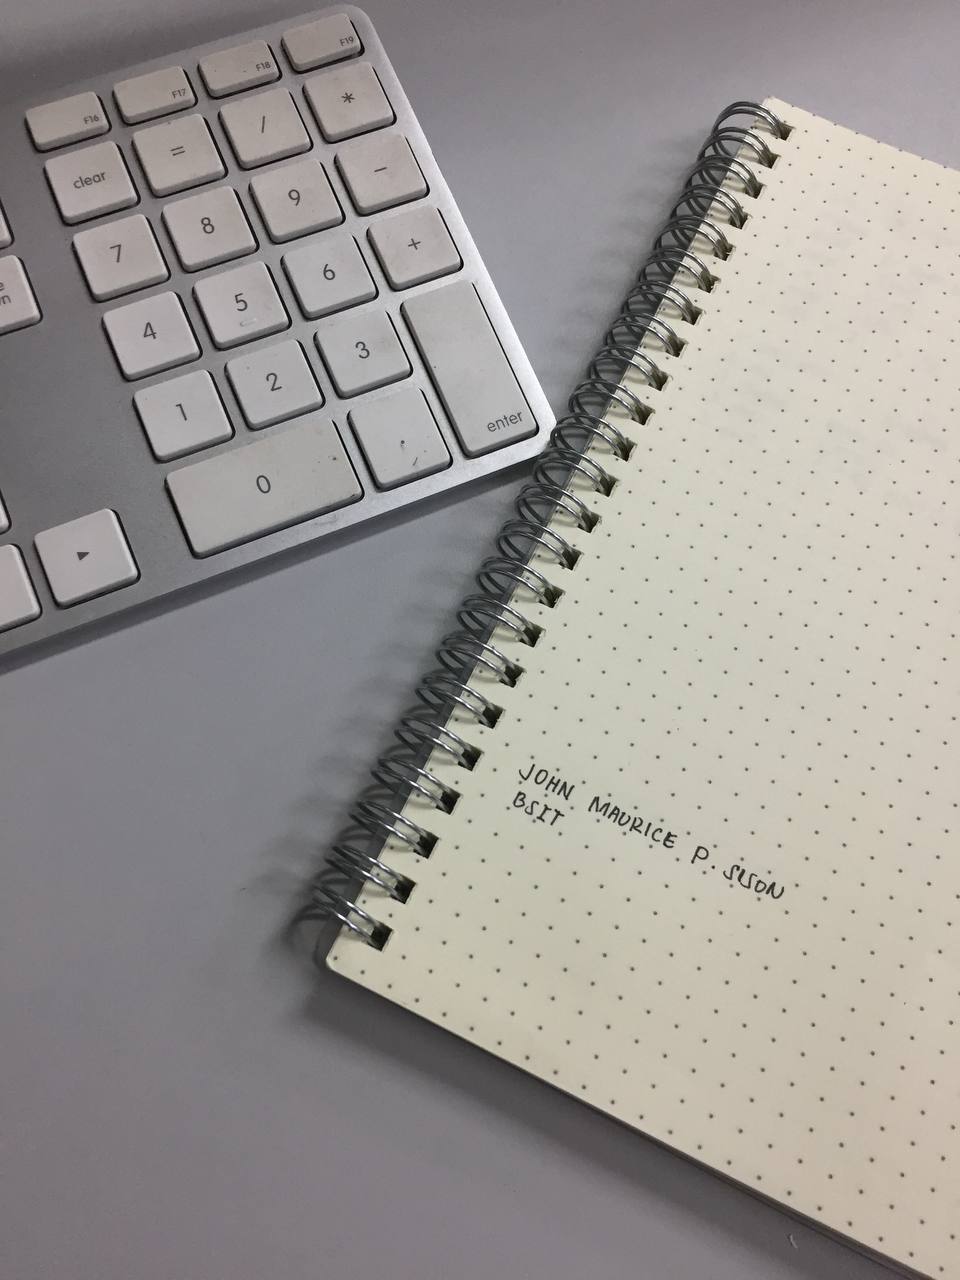 F16 F17 F18 F19
clear = / *
7 8 9 -
4 5 6 +
1 2 3
0 . enter
JOHN MAURICE P. SISON
BSIT